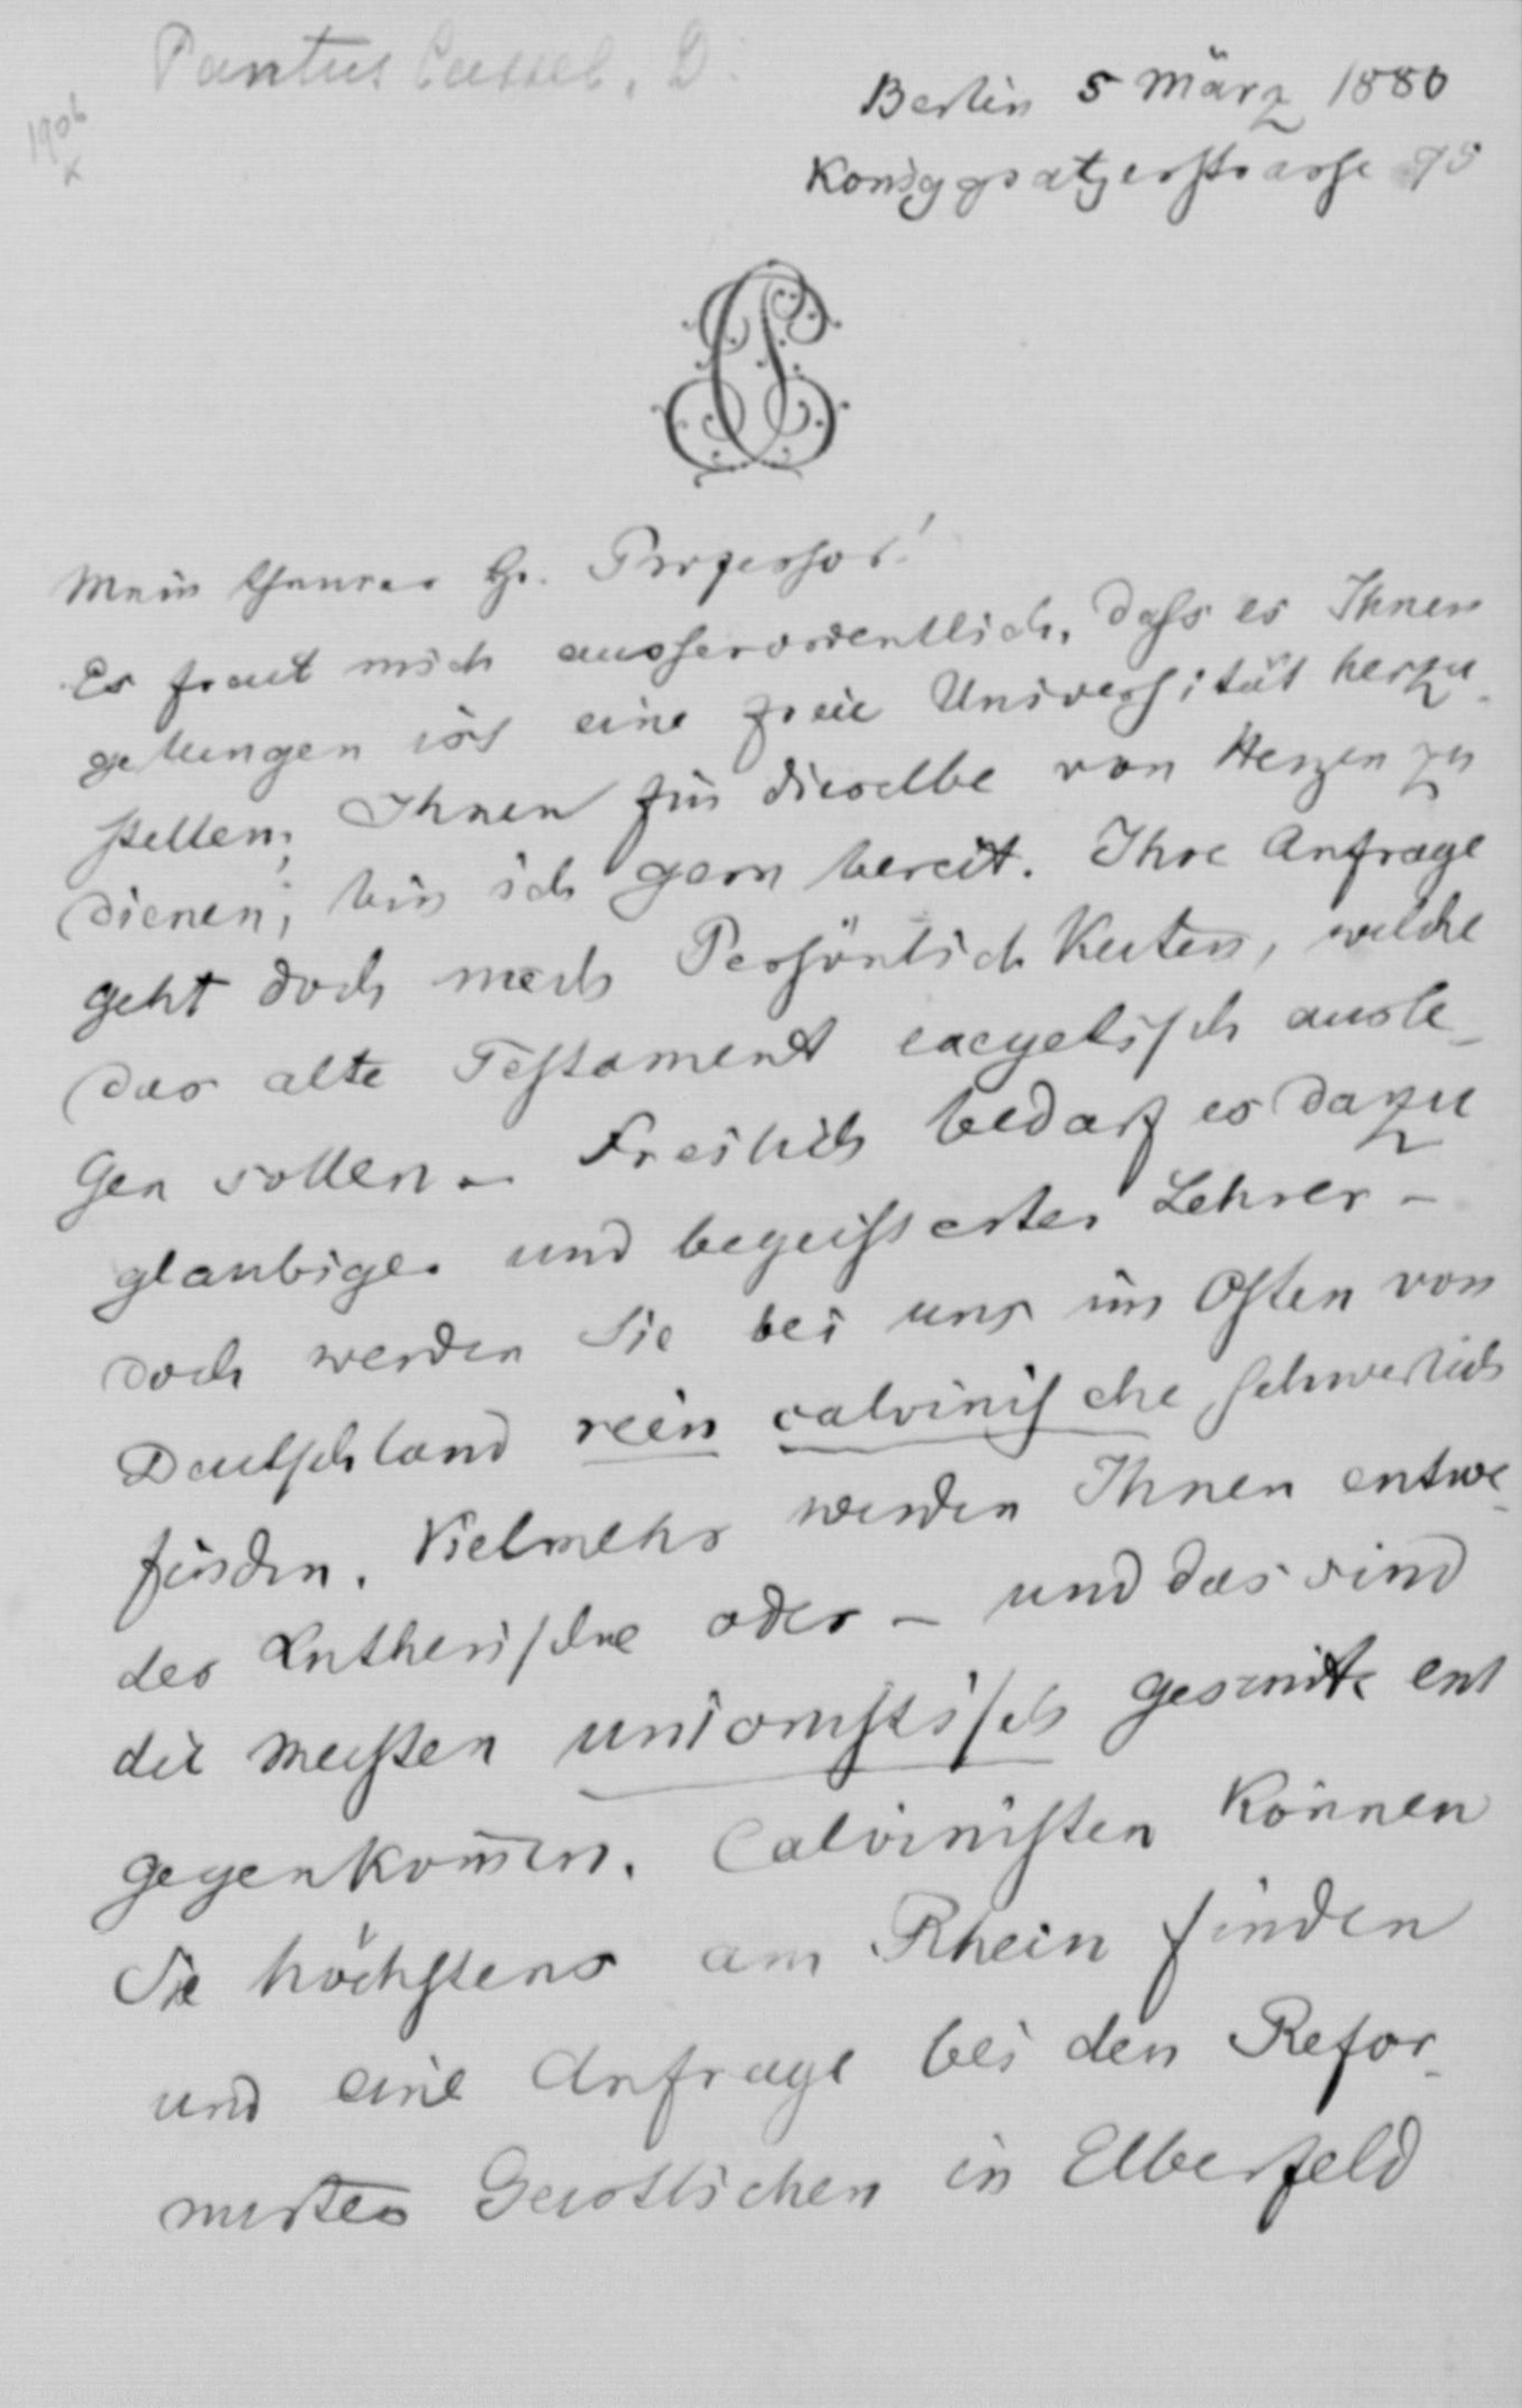 Paulus Cassel. D.
1906
Berlin 5 März 1880
Königgrätzerstrasse 95
CS
Mein theurer Hr. Professor!
Es freut mich ausserordentlich, dass es Ihnen
gelungen ist eine freie Universität herzu-
stellen; Ihnen für dieselbe von Herzen zu
dienen, bin ich gern bereit. Ihre Anfrage
geht doch nach Persönlichkeiten, welche
das alte Testament exegetisch ausle-
gen sollen. Freilich bedarf es dazu
glaubiger und begeisterter Lehrer –
doch werden Sie bei uns im Osten von
Deutschland rein calvinische schwerlich
finden. Vielmehr werden Ihnen entwe-
der Lutherische oder – und das sind
die meisten unionistisch gesinnte ent
gegenkom̄en. Calvinisten können
Sie höchstens am Rhein finden
und eine Anfrage bei den Refor-
mirten Geistlichen in Elberfeld